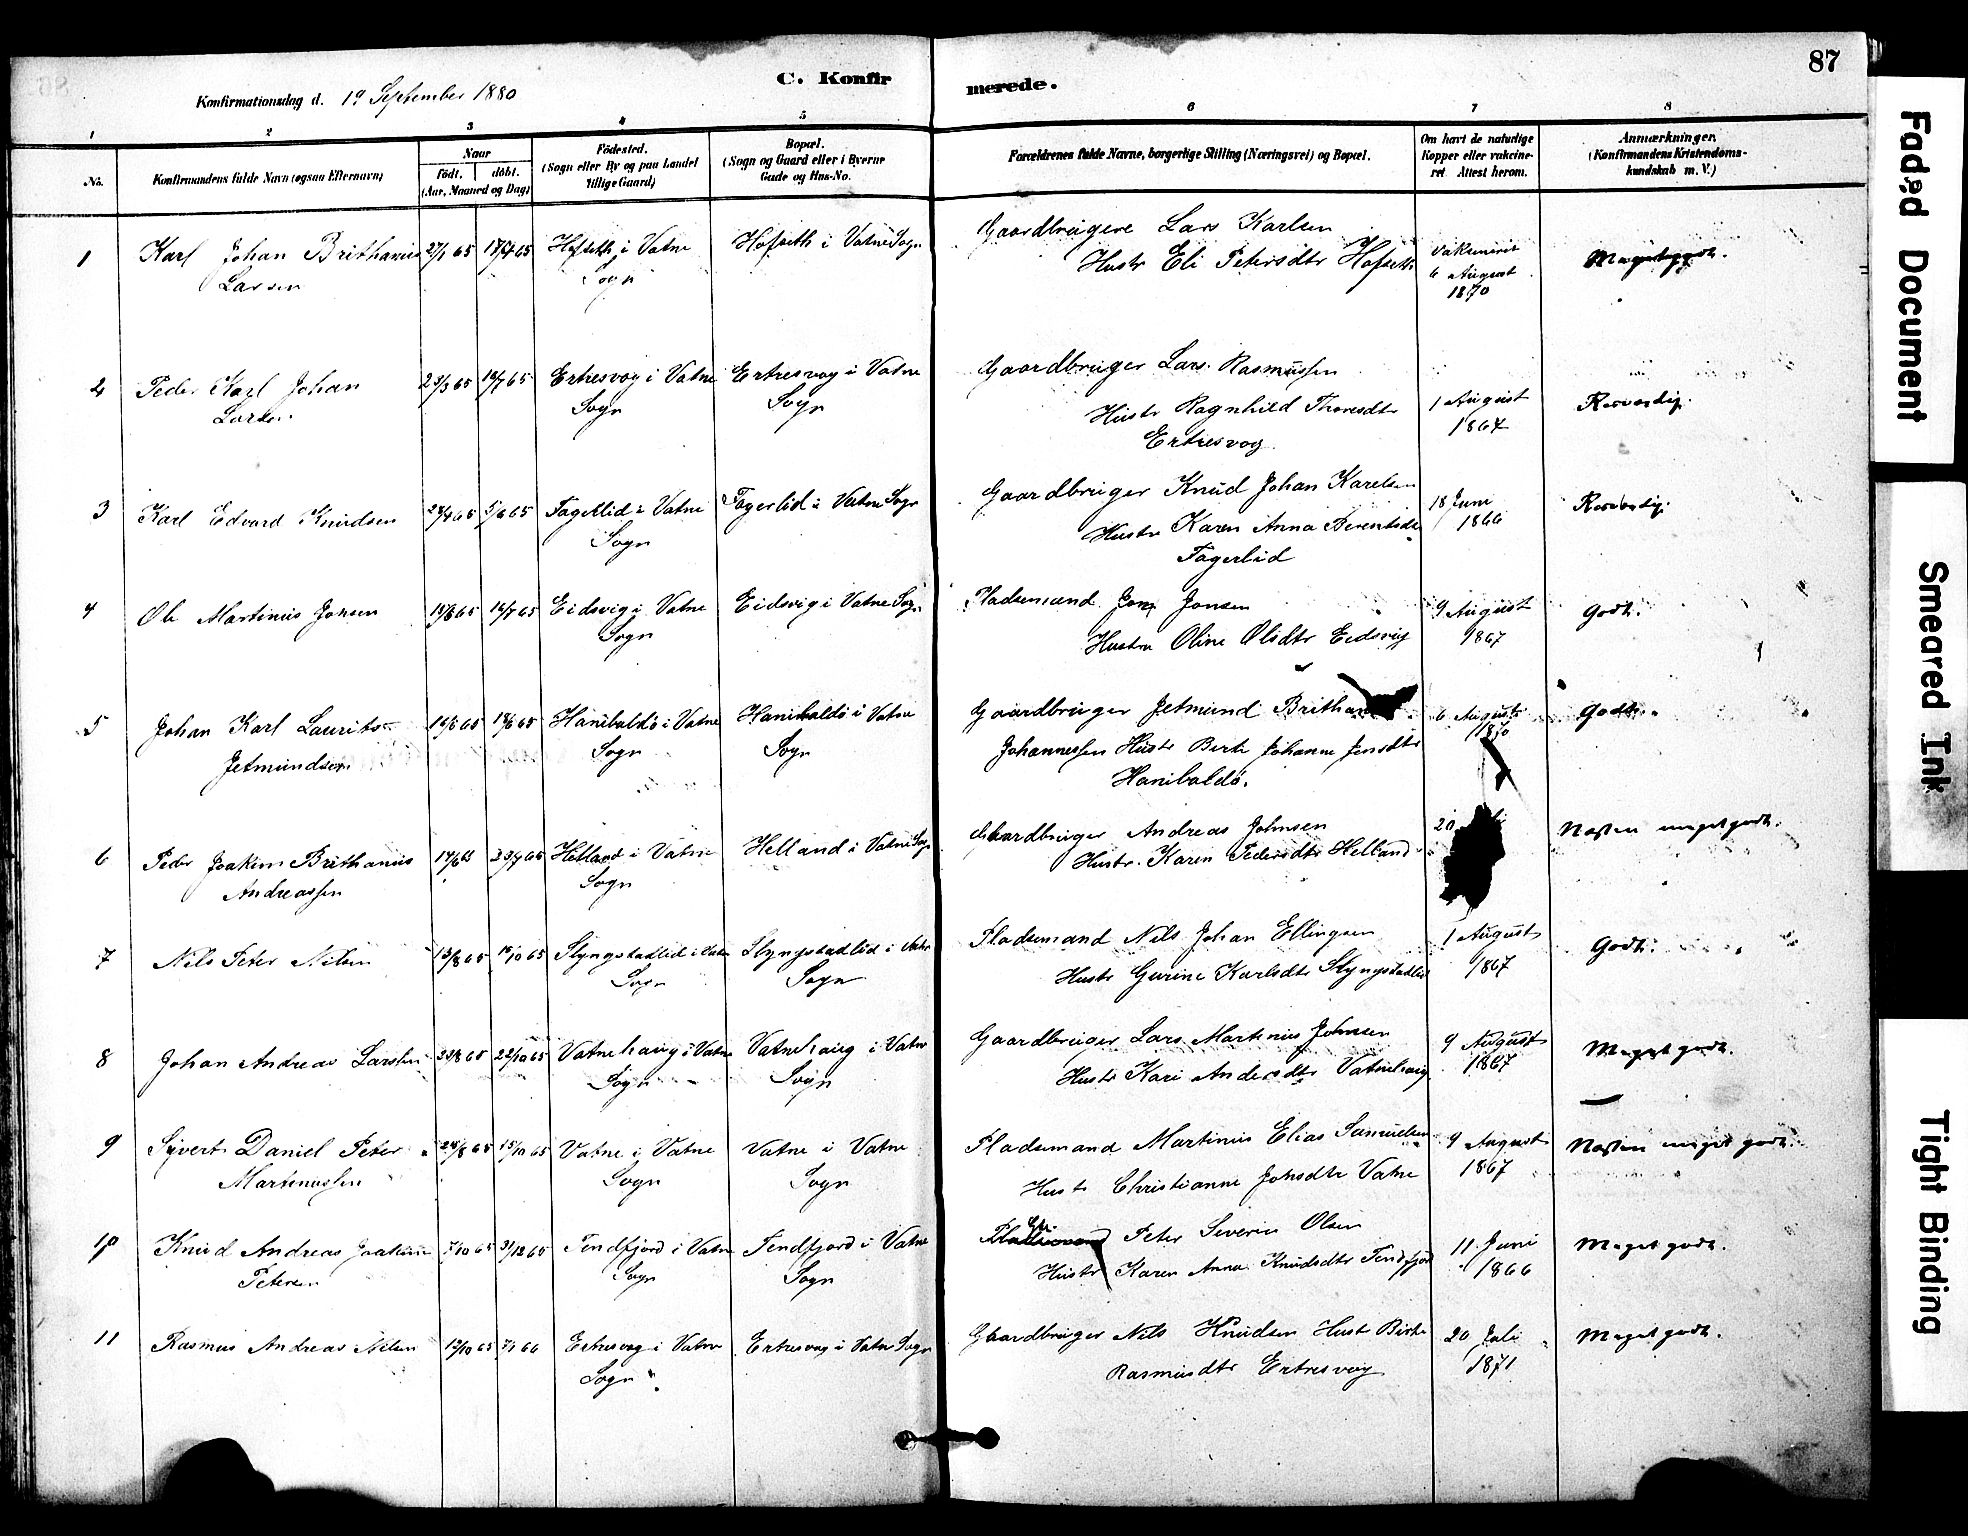 87
C. Konfirmerede.
Konfirmationsdag d. 19 September 1880
1 2 3 4 5 6 7 8
No.
Konfirmandens fulde Navn (ogsaa Efternavn)
Naar
født. døbt.
(Aar, Maaned og Dag)
Fødested.
(Sogn eller By og paa Landet
tillige Gaard)
Bopæl.
(Sogn og Gaard eller i Byerne
Gade og Hus-No.
Forældrenes fulde Navne, borgerlige Stilling (Næringsvei) og Bopæl.
Om havt de naturlige
Kopper eller vakcine-
ret Attest herom.
Anmærkninger.
(Konfirmandens Kristendoms-
kundskab m. V.)
1 Karl Johan Brithanius 27/1 65 17/4 65 Hofseth i Vatne Hofseth i Vatne Sogn Gaardbrugere Lars Karlsen Vakcinerit
Larsen Sogn Hustr Eli Petersdtr Hofseth 6 August Meget godt.
1870
2 Peder Karl Johan 23/3 65 16/7 65 Ertresvog i Vatne Ertresvog i Vatne Gaardbruger Lars Rasmussen
Larsen Sogn Sogn Hustr Ragnhild Thoresdtr 1 August
Ertresvog 1867
3 Karl Edvard Knudsen 5/6 65 Fagerlid i Vatne Fagerlid i Vatne Sogn Gaardbruger Knud Johan Karelsen 18 Juni
Sogn Hustr Karen Anna Berentsdtr 1866
Fagerlid
4 Ole Martinus Jonsen 16/7 65 Eidsvig i Vatne Eidsvig i Vatne Sogn Pladsemand Jon Jonsen 9 August Godt.
Sogn Hustru Oline Olsdtr Eidsvig 1867
5 Johan Karl Laurits 18/6 65 Hanibaldø i Vatne Hanibaldø i Vatne Gaardbruger Jetmund 6 August Godt.
Jetmundsen Sogn Sogn Johannessen Hustr Birte Johanne Jensdtr 1870
Hanibaldø.
6 Peder Joakim Brithanius 23/7 65 Helland i Vatne Helland i Vatne Sogn Gaardbruger Andreas Johnsen 20 Næsten meget godt.
Andreassen Sogn Hustr. Karen Pedersdtr Helland
7 Nils Peter Nilsen 13/8 65 15/10 65 Slyngstadlid i Vatne Slyngstadlid i Vatne Pladsemand Nils Johan Ellingsen 1 August Godt.
Sogn Sogn Hustr Gurine Karlsdtr Slyngstadlid 1867
8 Johan Andreas Larsen 23/8 65 22/10 65 Vatnehaug i Vatne Vatnehaug i Vatne Gaardbruger Lars Martinus Johnsen 9 August Meget godt.
Sogn Sogn Hustr Kari Andersdtr Vatnehaug 1867
9 Sivert Daniel Peter 28/8 65 15/10 65 Vatne i Vatne Vatne i Vatne Pladsemand Martinus Elias Samuelsen 9 August Næsten meget godt.
Martinussen Sogn Sogn Hustr Christianne Johsdtr Vatne 1867
10 Knud Andreas Joakim 7/10 65 31/12 65 Tendfjord i Vatne Tendfjord i Vatne Peter Severin Olsen 11 Juni Meget godt.
Petersen Sogn Sogn Hustr Karen Anna Knudsdtr Tendfjord 1866
11 Rasmus Andreas Nilsen 7/1 66 Ertresvog i Vatne Ertresvog i Vatne Sogn Gaardbruger Nils Knudsen Hustr Birte 20 Juli Meget godt.
Sogn Rasmusdtr Ertresvog 1871
Faded Document
Smeared Ink
Tight Binding